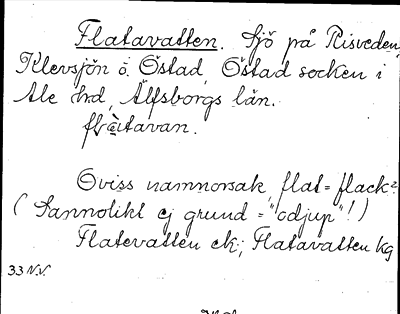 Flatavatten. Sjö på Risveden,
Klevsjön ö. Östad, Östad socken i
Ale hrd, Älfsborgs län.
flatavan.
Oviss namnorsak, flat = flack?
(Sannolikt ej grund = "odjup"!)
Flatevatten ek; Flatavatten kg
33 N.V.